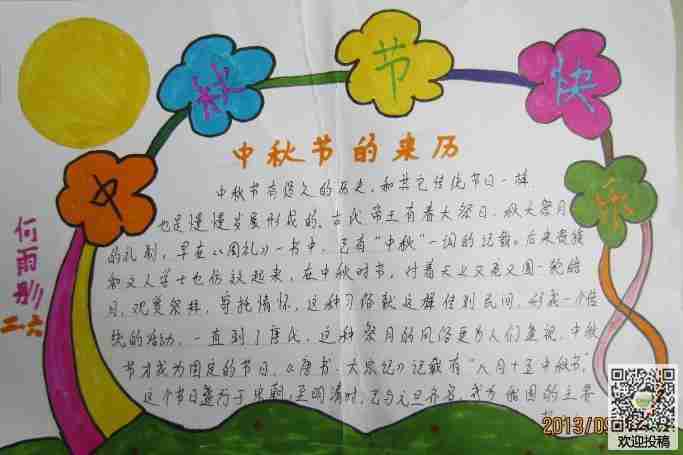 中
秋
节
快
乐
中秋节的来历
何雨彤
二六
中秋节有悠久的历史,和其它传统节日一样,
也是慢慢发展形成的。古代帝王有春天祭日,秋天祭月
的礼制,早在《周礼》一书中,已有“中秋”一词的记载。后来贵族
和文人学士也仿效起来,在中秋时节,对着天上又亮又圆一轮皓
月,观赏祭拜,寄托情怀,这种习俗就这样传到民间,形成一个传
统的活动,一直到了唐代,这种祭月的风俗更为人们重视,中秋
节才成为固定的节日,《唐书·太宗记》记载有“八月十五中秋节”,
这个节日盛行于宋朝,至明清时,已与元旦齐名,成为我国的主要
2013/09
欢迎投稿